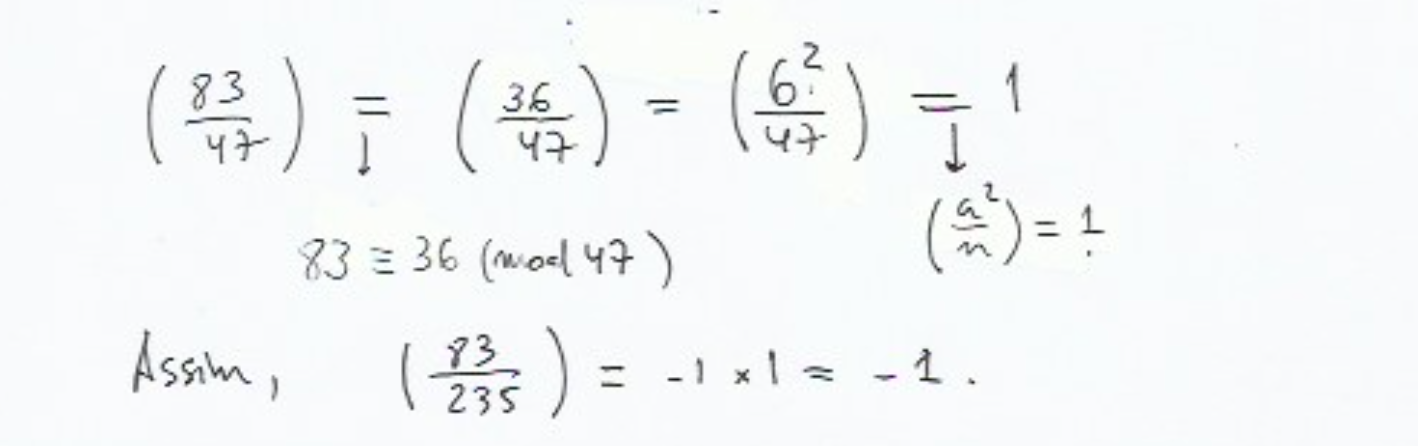 (83/47) = (36/47) = (6²/47) = 1
↓ ↓
83 ≡ 36 (mod 47) (a²/n) = 1
Assim, (83/235) = -1 × 1 = -1.